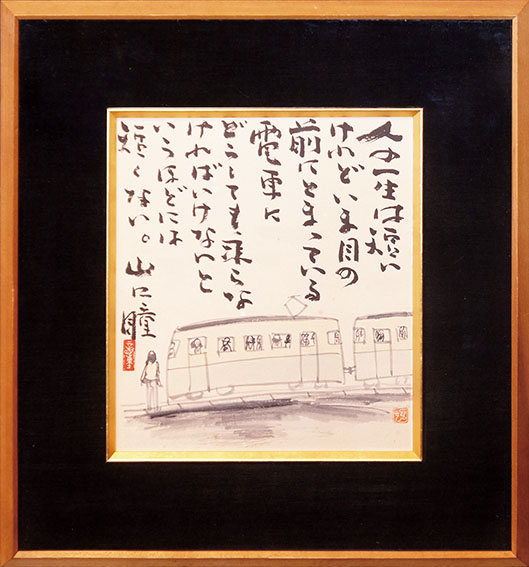 人の一生は短い
けれどいま目の
前にとまっている
電車に
どうしても乗らな
ければいけないと
いうほどには
短くない。
山口瞳